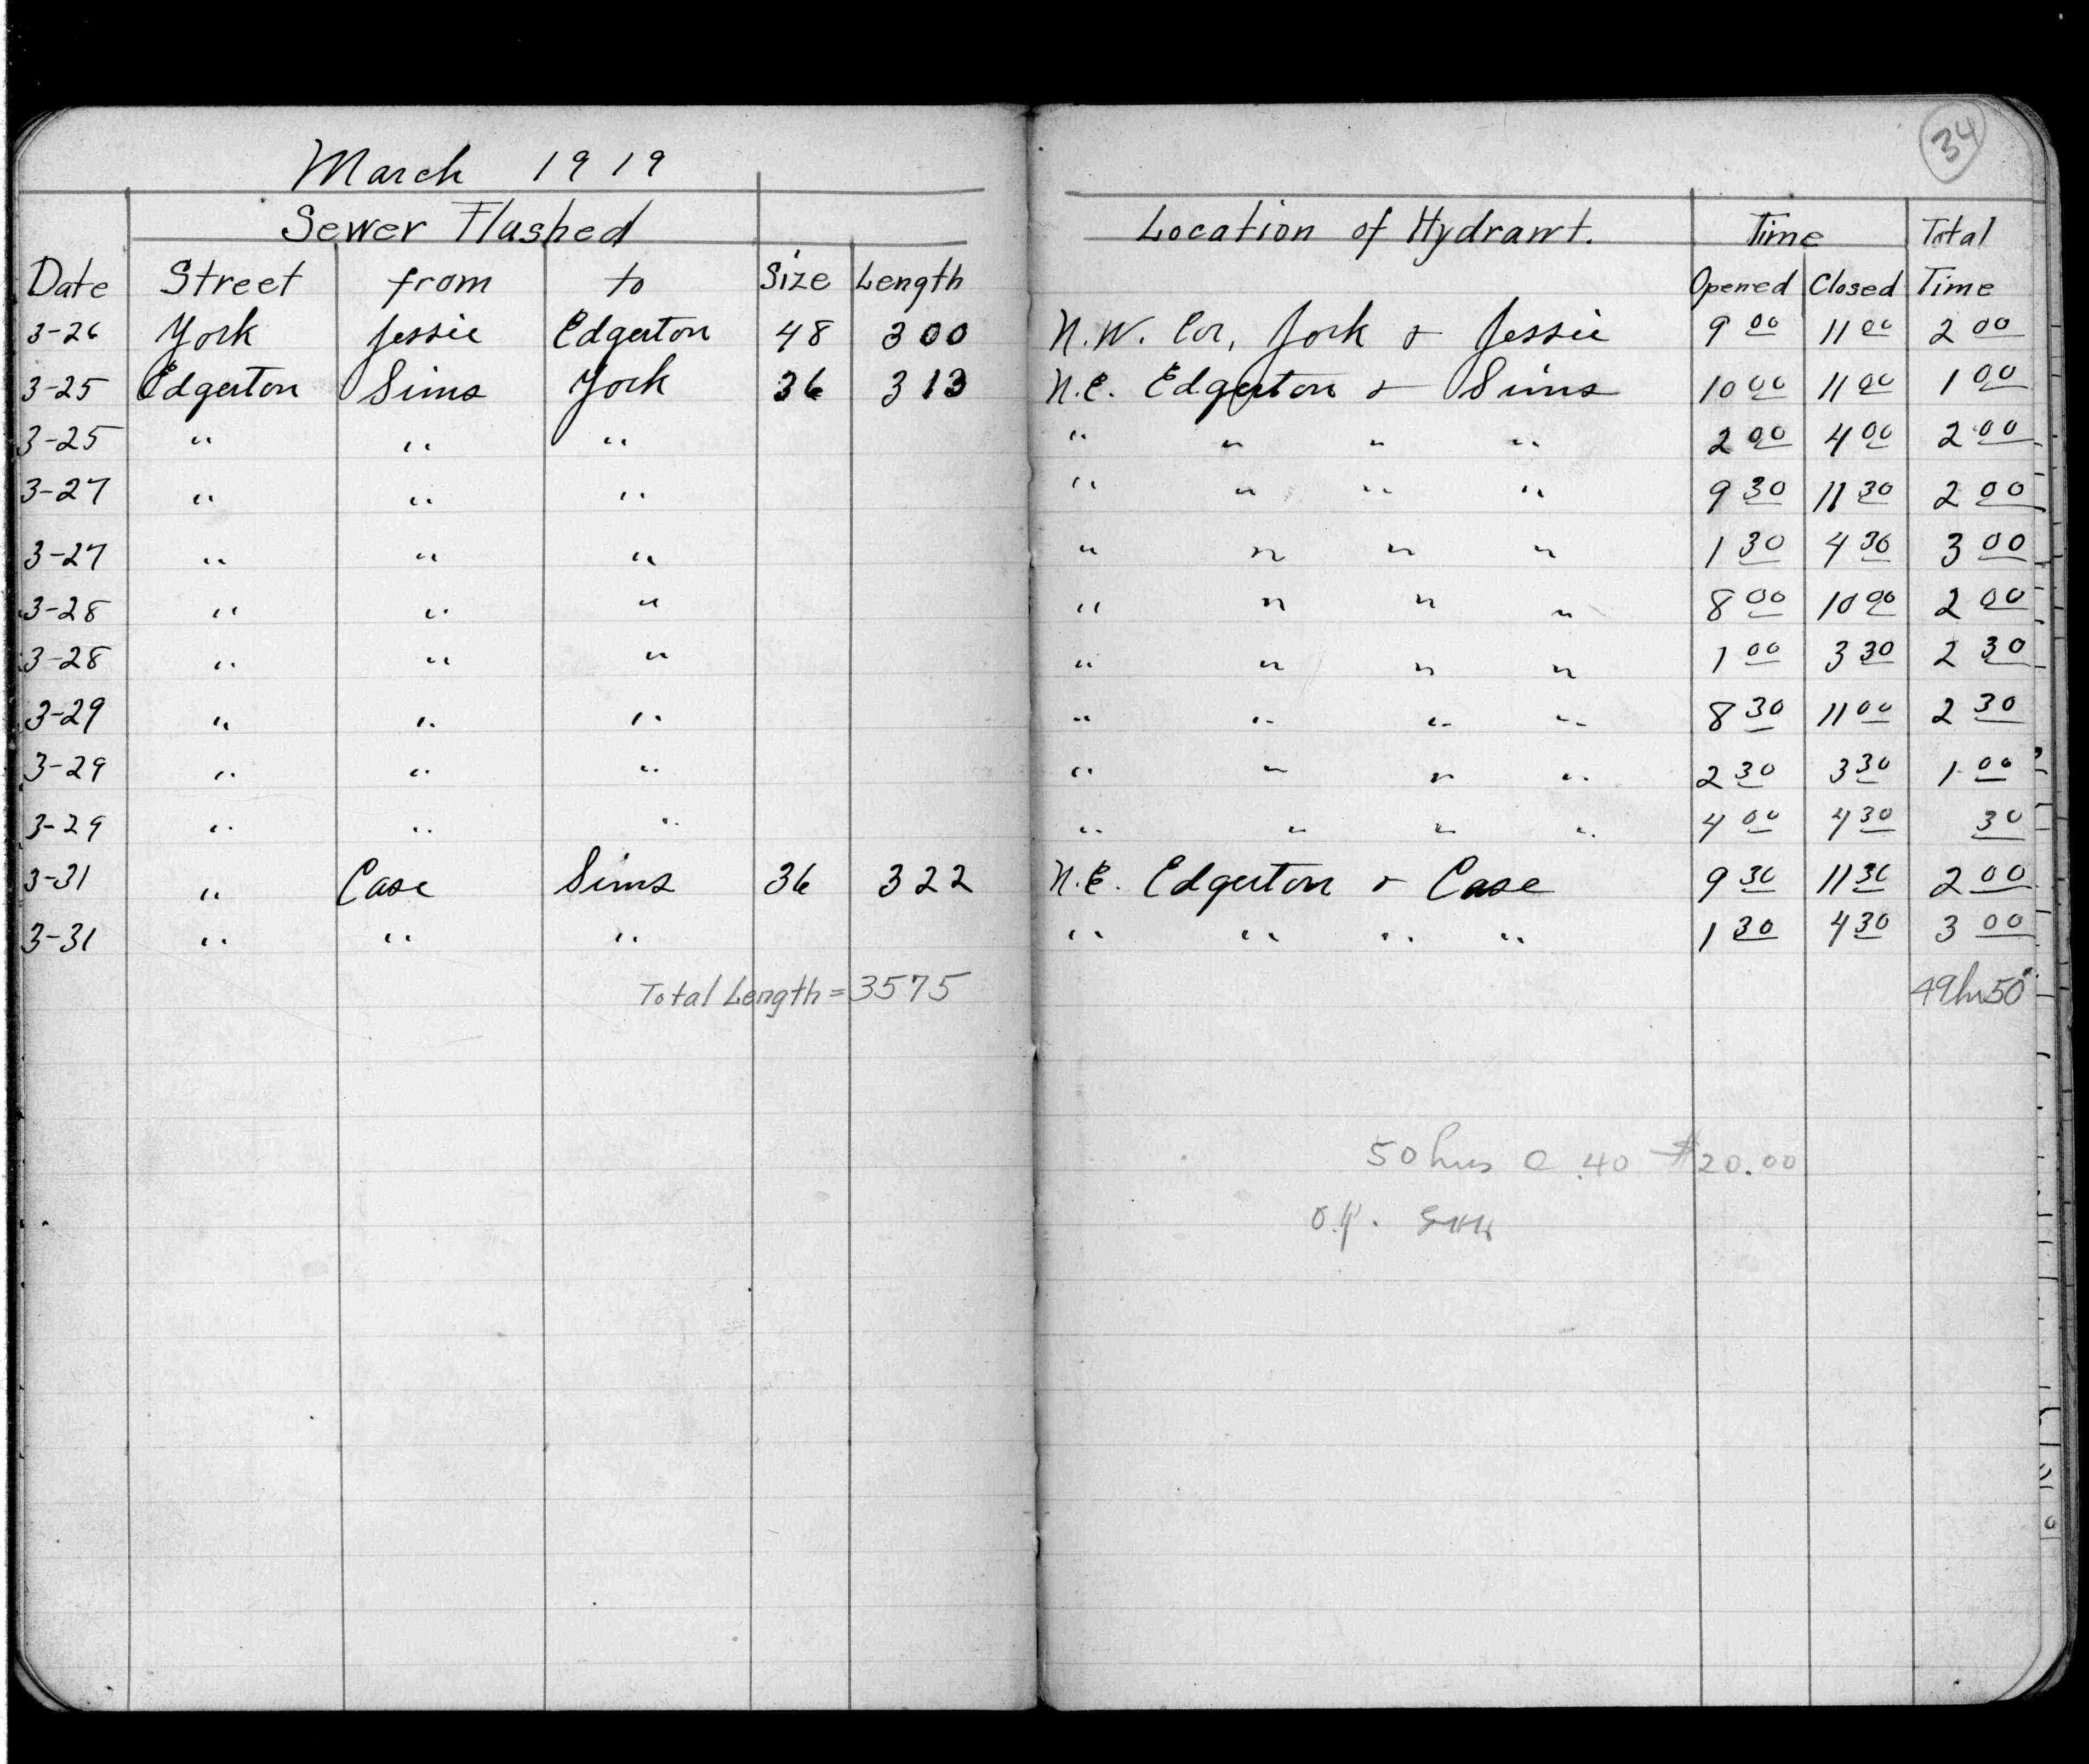 34
March 1919
Sewer Flushed Location of Hydrant. Time Total
Date Street from to Size Length Opened Closed Time
3-26 York Jessie Edgerton 48 300 N.W. Cor, York & Jessie 9 00 11 00 2 00
3-25 Edgerton Sims York 36 313 N.E. Edgerton & Sims 10 00 11 00 1 00
3-25 " " " " " " " 2 00 4 00 2 00
3-27 " " " " " " " 9 30 11 30 2 00
3-27 " " " " " " " 1 30 4 30 3 00
3-28 " " " " " " " 8 00 10 00 2 00
3-28 " " " " " " " 1 00 3 30 2 30
3-29 " " " " " " " 8 30 11 00 2 30
3-29 " " " " " " " 2 30 3 30 1 00
3-29 " " " " " " " 4 00 4 30 30
3-31 " Case Sims 36 322 N.E. Edgerton & Case 9 30 11 30 2 00
3-31 " " " " " " " 1 30 4 30 3 00
Total Length = 3575 49hr 50
50 hrs @ .40 $20.00